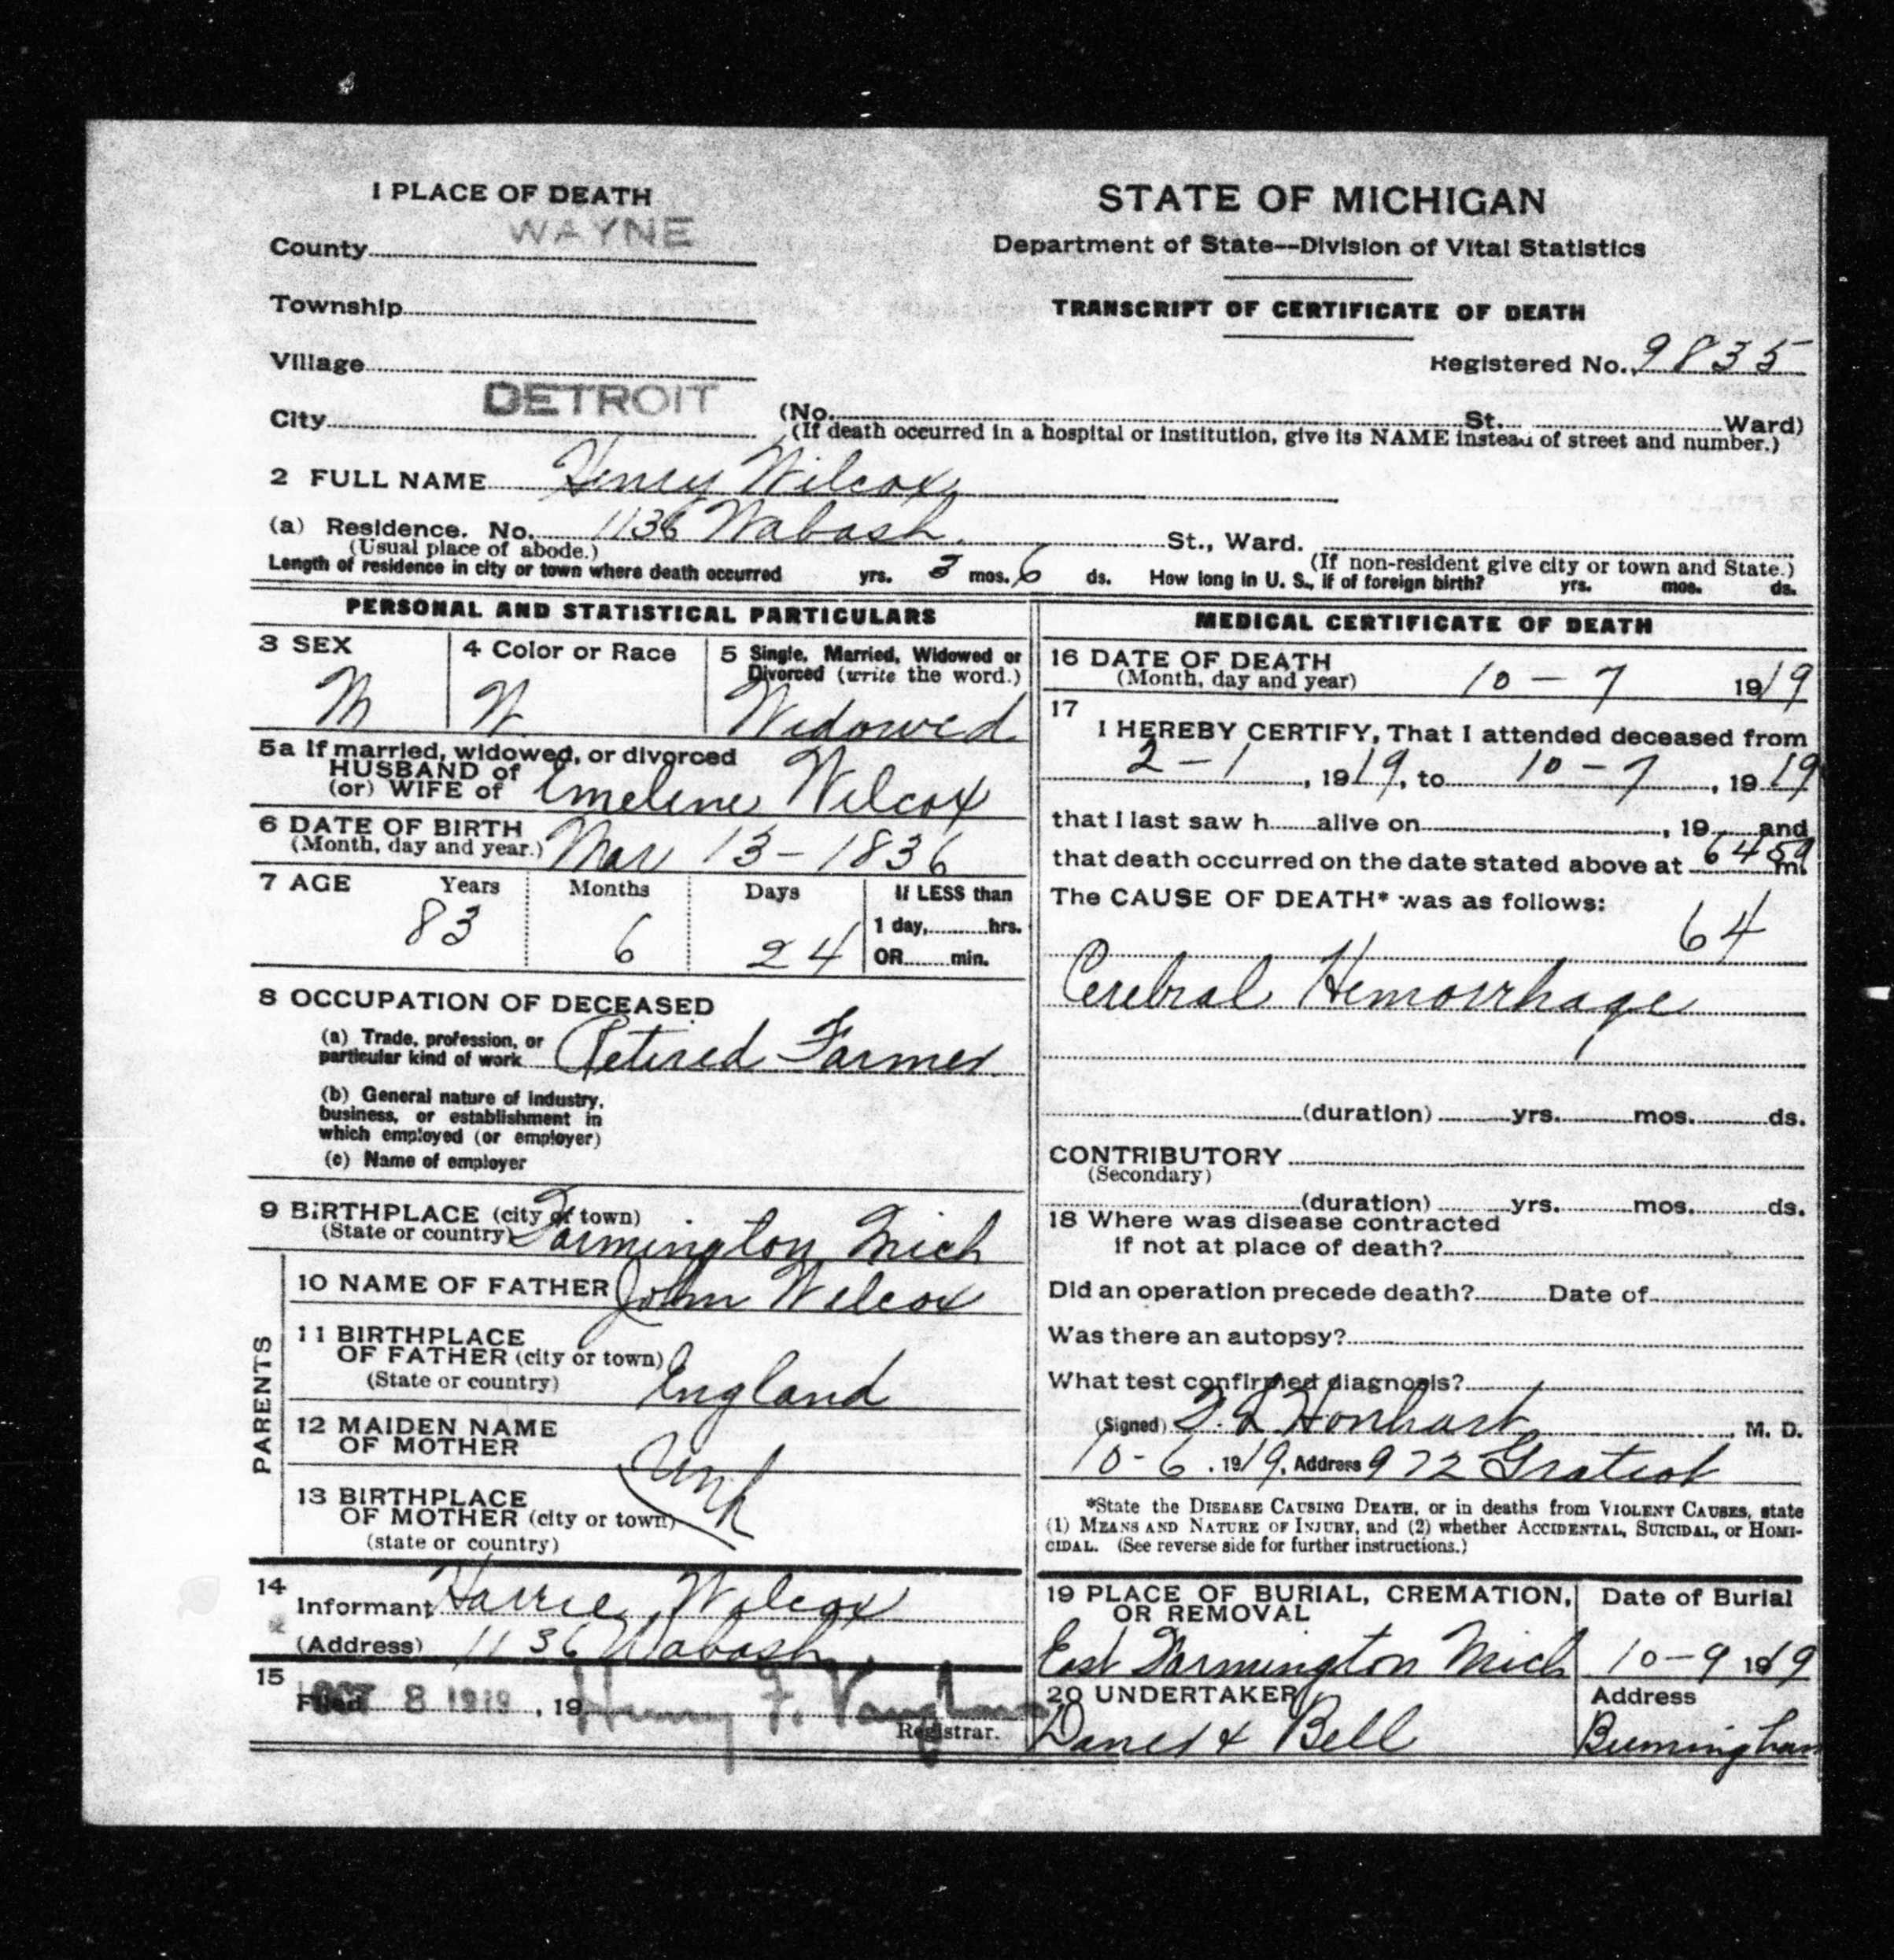 1 PLACE OF DEATH
County WAYNE
Township
Village
City DETROIT
STATE OF MICHIGAN
Department of State--Division of Vital Statistics
TRANSCRIPT OF CERTIFICATE OF DEATH
Registered No. 9835
(No. St. Ward)
(If death occurred in a hospital or institution, give its NAME instead of street and number.)
2 FULL NAME Henry Wilcox
(a) Residence. No. 1136 Wabash St., Ward.
(Usual place of abode.) (If non-resident give city or town and State.)
Length of residence in city or town where death occurred yrs. 3 mos. 6 ds. How long in U. S., if of foreign birth? yrs. mos. ds.
PERSONAL AND STATISTICAL PARTICULARS
3 SEX
M
4 Color or Race
W
5 Single, Married, Widowed or
Divorced (write the word.)
Widowed
5a If married, widowed, or divorced
HUSBAND of
(or) WIFE of Emelene Wilcox
6 DATE OF BIRTH
(Month, day and year.) Mar 13-1836
7 AGE Years Months Days If LESS than
83 6 24 1 day, hrs.
OR min.
8 OCCUPATION OF DECEASED
(a) Trade, profession, or
particular kind of work Retired Farmer
(b) General nature of industry,
business, or establishment in
which employed (or employer)
(c) Name of employer
9 BIRTHPLACE (city or town)
(State or country) Farmington Mich
PARENTS
10 NAME OF FATHER John Wilcox
11 BIRTHPLACE
OF FATHER (city or town)
(State or country) England
12 MAIDEN NAME
OF MOTHER
Unk
13 BIRTHPLACE
OF MOTHER (city or town)
(state or country)
14
Informant Harrie Wilcox
(Address) 1136 Wabash
15
Filed OCT 8 1919, 19 Henry F. Vaughan
Registrar.
MEDICAL CERTIFICATE OF DEATH
16 DATE OF DEATH
(Month, day and year) 10-7 1919
17
I HEREBY CERTIFY, That I attended deceased from
2-1, 1919, to 10-7, 1919
that I last saw h alive on , 19 and
that death occurred on the date stated above at m.
The CAUSE OF DEATH* was as follows:
64
Cerebral Hemorrhage
(duration) yrs. mos. ds.
CONTRIBUTORY
(Secondary)
(duration) yrs. mos. ds.
18 Where was disease contracted
if not at place of death?
Did an operation precede death? Date of
Was there an autopsy?
What test confirmed diagnosis?
(Signed) Honhart, M. D.
10-6. 1919. Address 972 Gratiot
*State the DISEASE CAUSING DEATH, or in deaths from VIOLENT CAUSES, state
(1) MEANS AND NATURE OF INJURY, and (2) whether ACCIDENTAL, SUICIDAL, or HOMI-
CIDAL. (See reverse side for further instructions.)
19 PLACE OF BURIAL, CREMATION,
OR REMOVAL
East Farmington Mich
Date of Burial
10-9 1919
20 UNDERTAKER
& Bell
Address
Birmingham